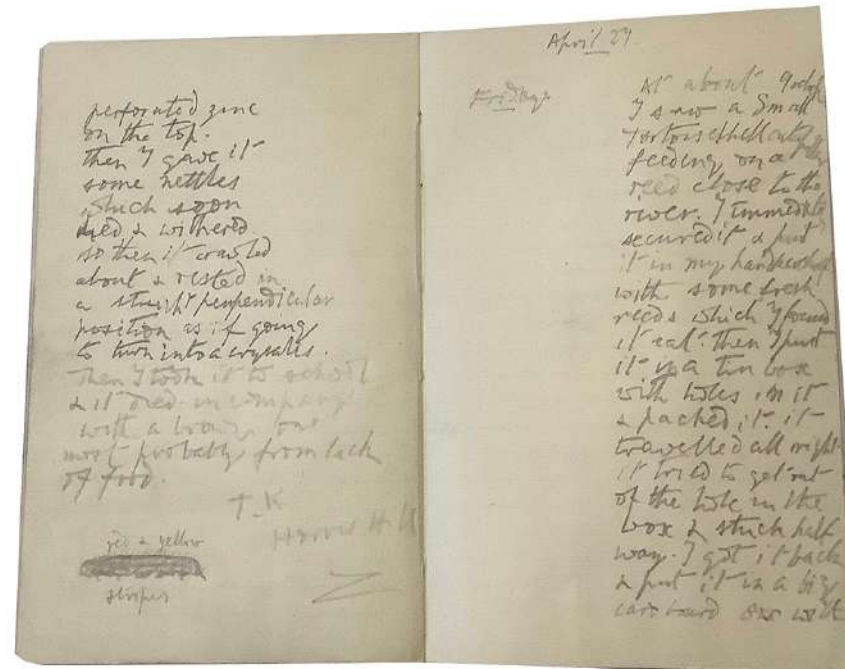 perforated zinc
on the top.
then I gave it
some nettles
which soon
died & withered
so then it crawled
about & rested in
a straight perpendicular
position as if going
to turn into a crysalis.
Then I took it to school
& it died in company
with a brown one
most probably from lack
of food.
T.K
red & yellow
stripes
April 27
At about 9 o
I saw a Small
Tortoiseshell
feeding on a
reed close to the
river. I immediately
secured it & put
it in my handkerchief
with some fresh
reeds which I found
it eat. then I put
it in a tin box
with holes in it
& packed it. it
travelled all right
it tried to get out
of the hole in the
box & stuck half
way. I got it back
& put it in a big
cardboard one with